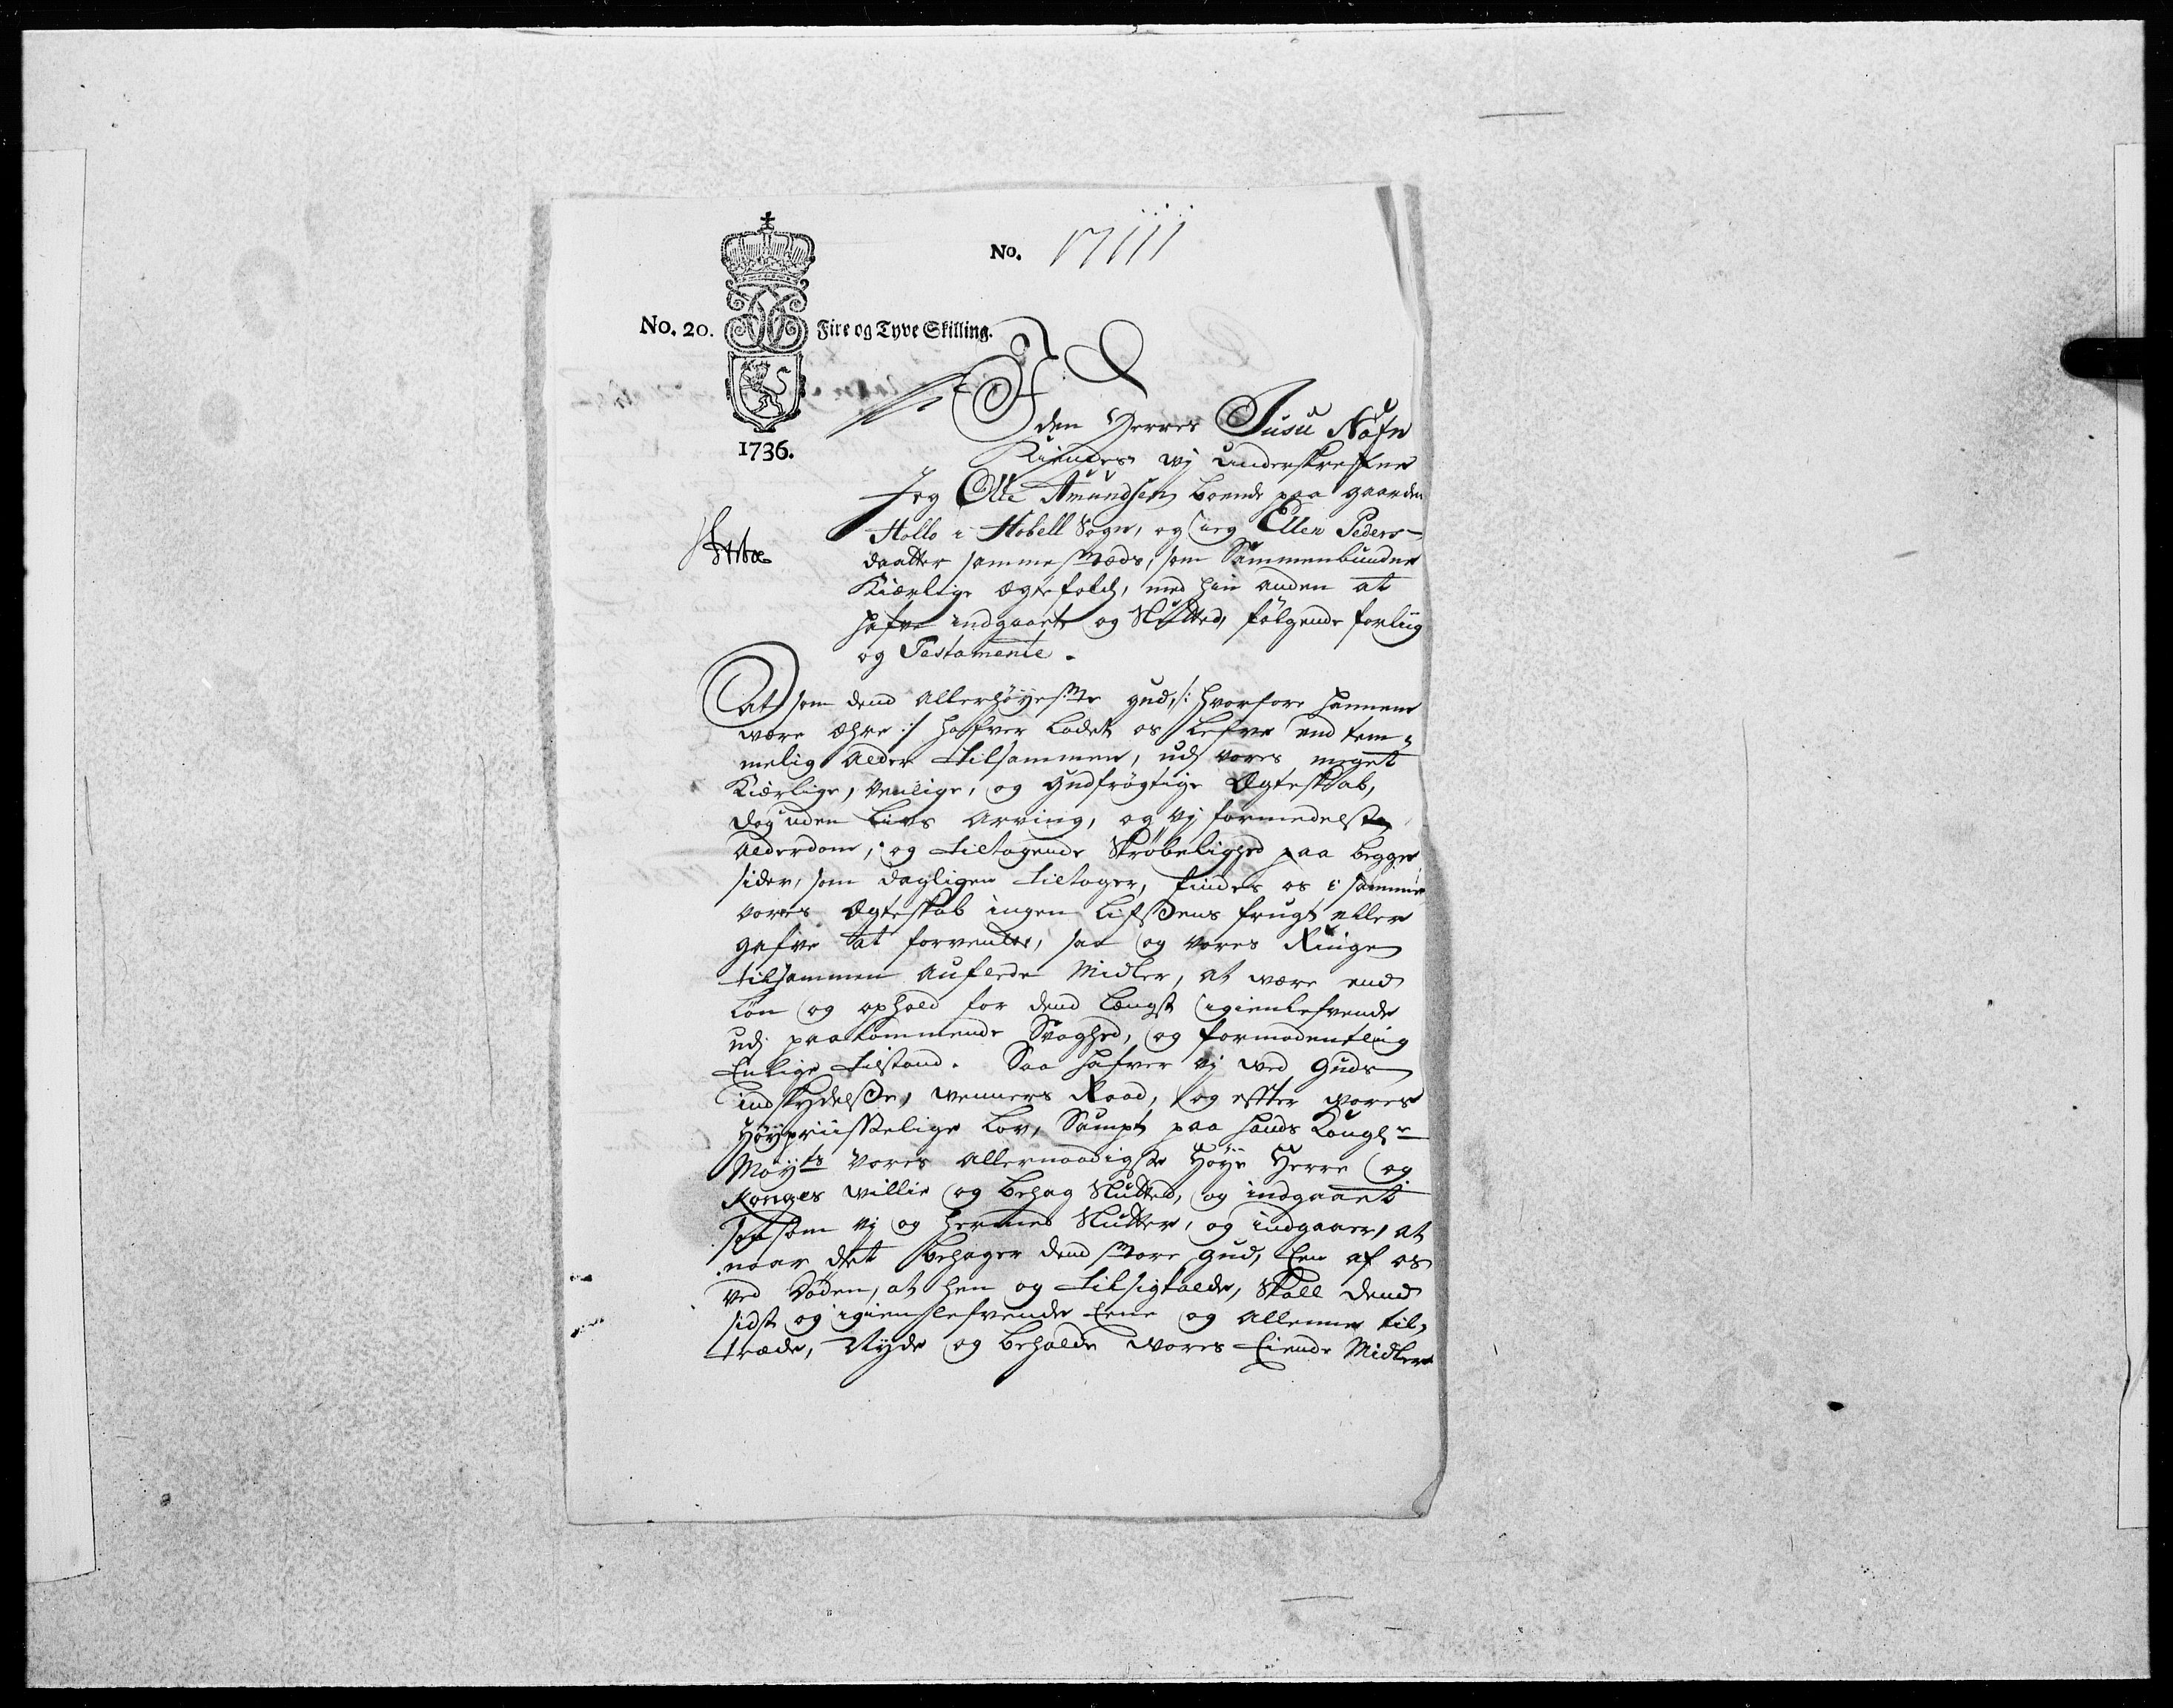 No. 17111
No. 20. Fire og Tyve Skilling.
1736.
I den Herres Jusu Nafn
Kiendes wj underskrefne
Jeg Olle Amundsen boende paa gaarden
Hollo i Hobell Sogn, og ieg Ellen Peders-
daatter sammestæds, som Sammenbundne
Kiærlige ægtefolck, med hin anden at
hafve indgaaet og Slutted, følgende forliig
og Testamente.
At som dend Allerhøyeste gud, /: hvorfore hannem
være æhre :/ hafver ladet os lefve end tem-
melig Alder tilsammen, udj vores meget
Kiærlige, venlige, og gudfrøgtige Ægteskab,
dog uden Livs Arving, og vj formedelst
Alderdom, og tiltagende Skrøbelighed paa begge
sider, som dagligen tiltager, findes os i samme
vores Ægteskab ingen Lifsens frugt eller
gafve at forvente, saa og vores Ringe
tilsammen auflede Midler, at være end
løn og ophold for dend længst igienlefvende
udj paakommende Svaghed, og formodentlig
Enlige tilstand. Saa hafver vj ved Guds
indskydelse, venners Raad, og effter vores
Høypriisselige Lov, Sampt paa hands Kongl:e
May:ts vores allernaadigste Høye Herre og
Konges villie og behag Sluttet, og indgaaet
saasom vj og hermed Slutter, og indgaaer, at
naar det behager dend store gud, Een af os
ved Døden, at hen og til sig kalde, skall dend
sidst og igienlefvende Eene og Allene til-
træde, Nyde og beholde vores Eiende Midler